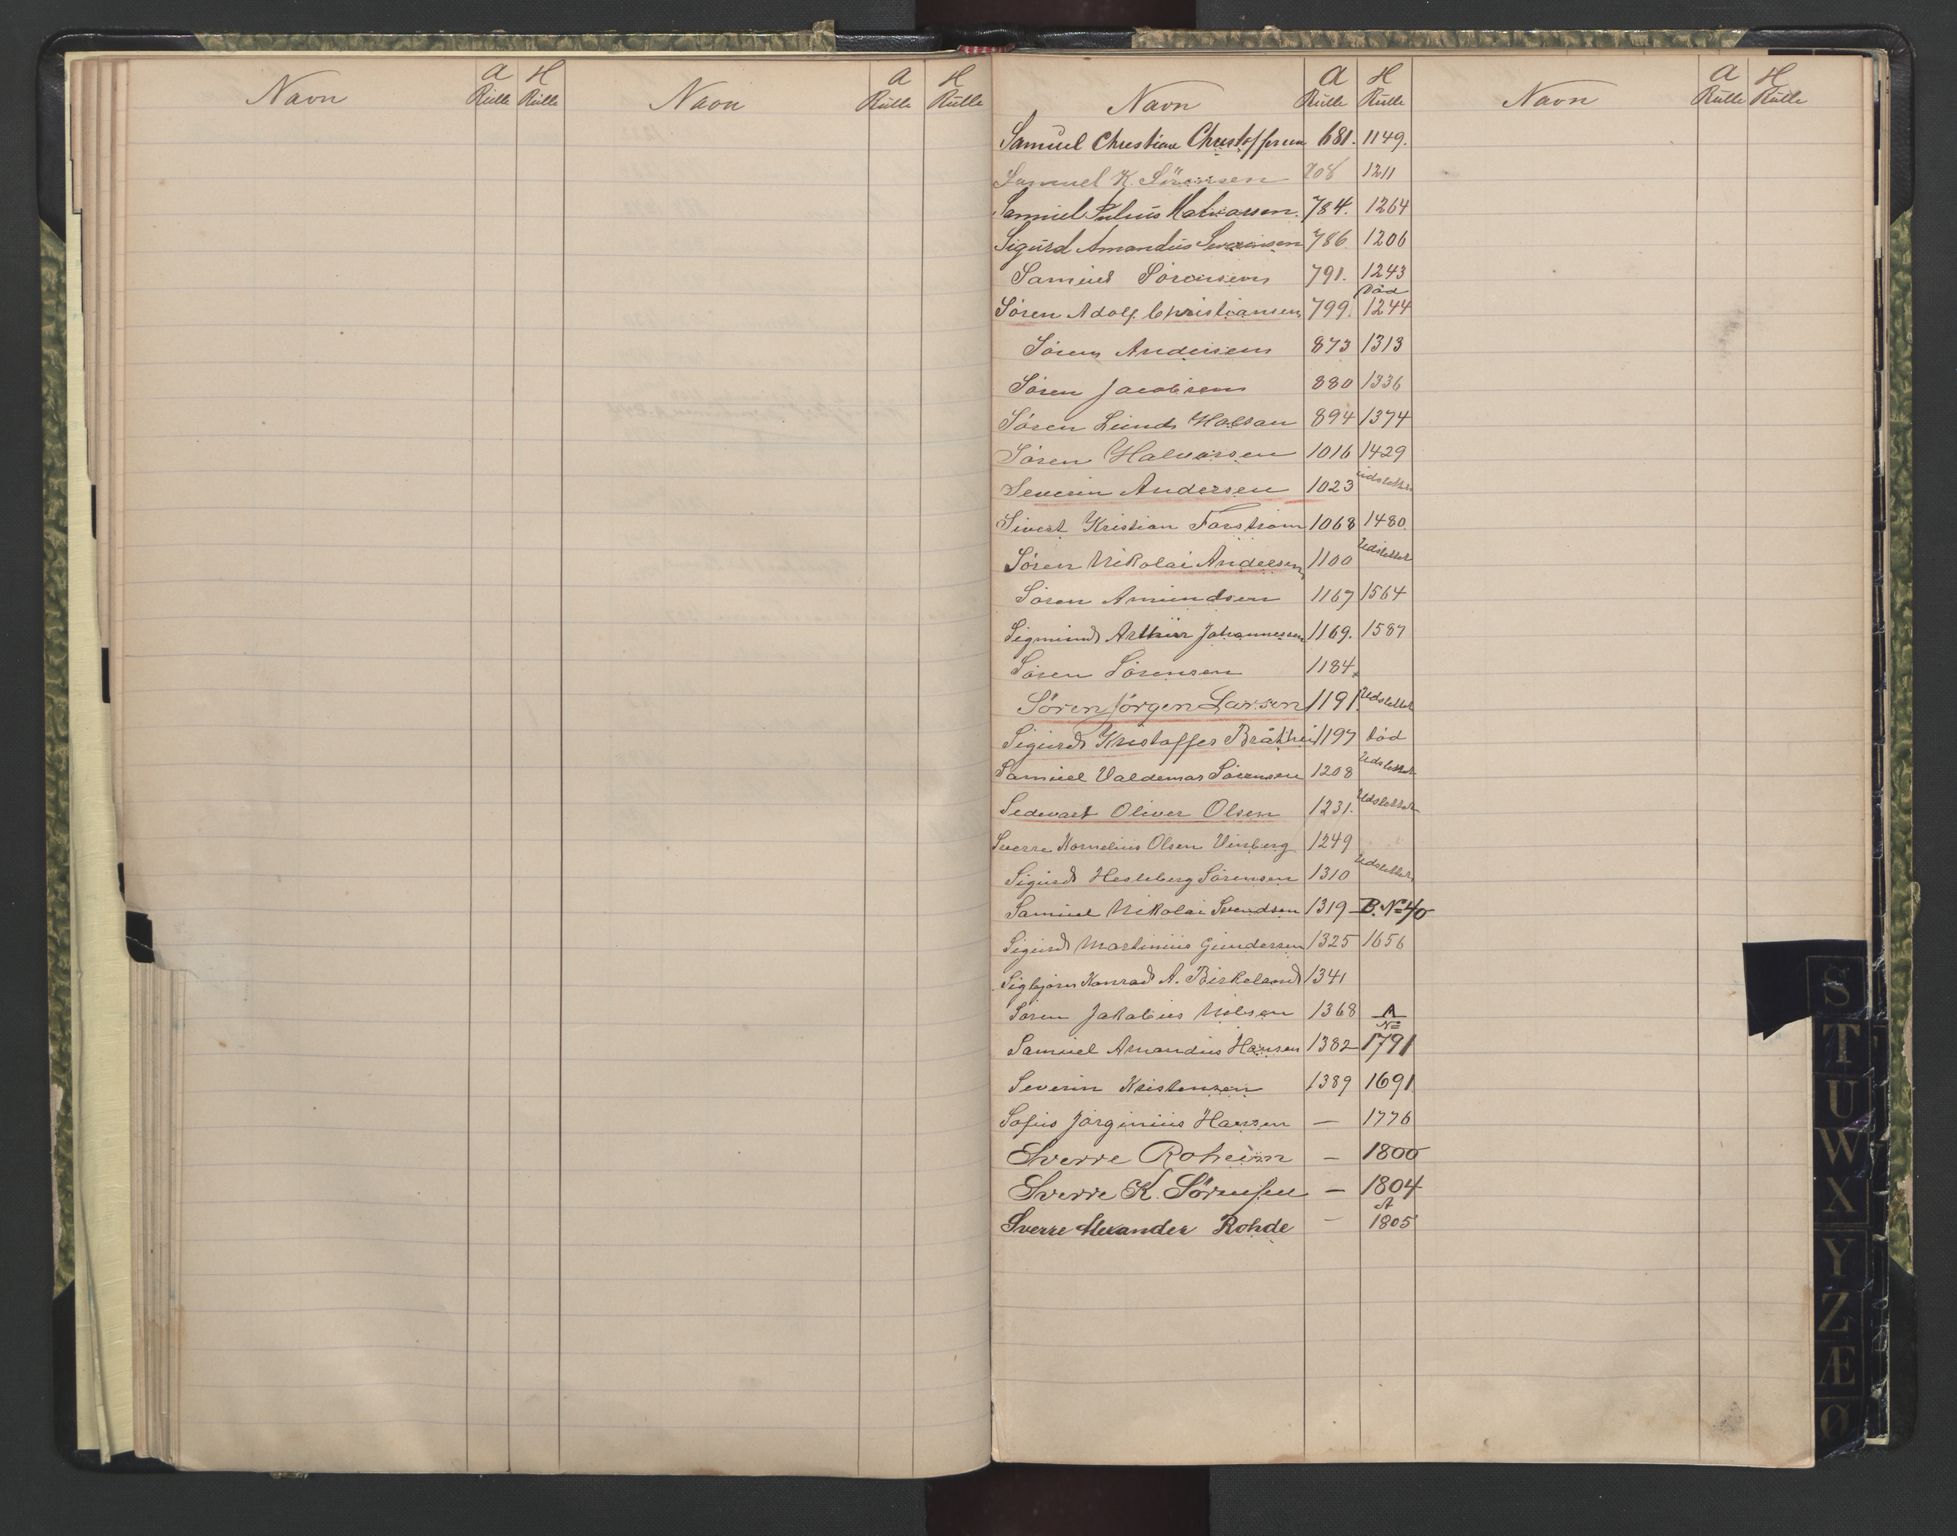 Navn A Rulle H Rulle Navn A Rulle H Rulle
Navn A Rulle H Rulle Navn A Rulle H Rulle
Samuel Christian Christoffersen 681. 1149.
Samuel K. Sörensen 708 1211
Samuel Julius Mathiassen. 784. 1264
Sigurd Amandus Severinsen 786. 1206
Samuel Sørensen 791. 1243
Søren Adolf Christiansen 799. død 1244
Søren Andersen 873 1313
Søren Jacobsen 880 1336
Søren Lund 894 1374
Søren Halvorsen 1016 1429
Severin Andersen 1023 udslettet
Sivert Kristian Farstrøm 1068 1480.
Søren Nikolai Andersen 1100 Udslettet
Søren Amundsen 1167 1564
Sigmund Arthur Johannessen 1169. 1587
Søren Sørensen 1184
Søren Jørgen Larsen 1191 Udslettet
Sigurd Kristoffer 1197 død
Samuel Valdemar Sørensen 1208 Udslettet
Sedevart Oliver Olsen 1231. Udslettet
Sverre Kornelius Olsen Vinberg 1249
Sigurd Hesleberg Sørensen 1310 Udslettet
Samuel Nikolai Svendsen 1319 B. No 40
Sigurd Martinius Gundersen 1325 1656
Sigbjørn Konrad A. Birkeland 1341
Søren Jakobius Nilsen 1368 A
Samuel Amandus Hansen 1382 No 1791
Severin Kristensen 1389 1691
Sofus Jørginius Hansen — 1776
Sverre Roheim — 1800
Sverre K. Sørensen — 1804
Sverre Alexander Rohde — A 1805
S
T
U
W
X
Y
Z
Æ
Ø